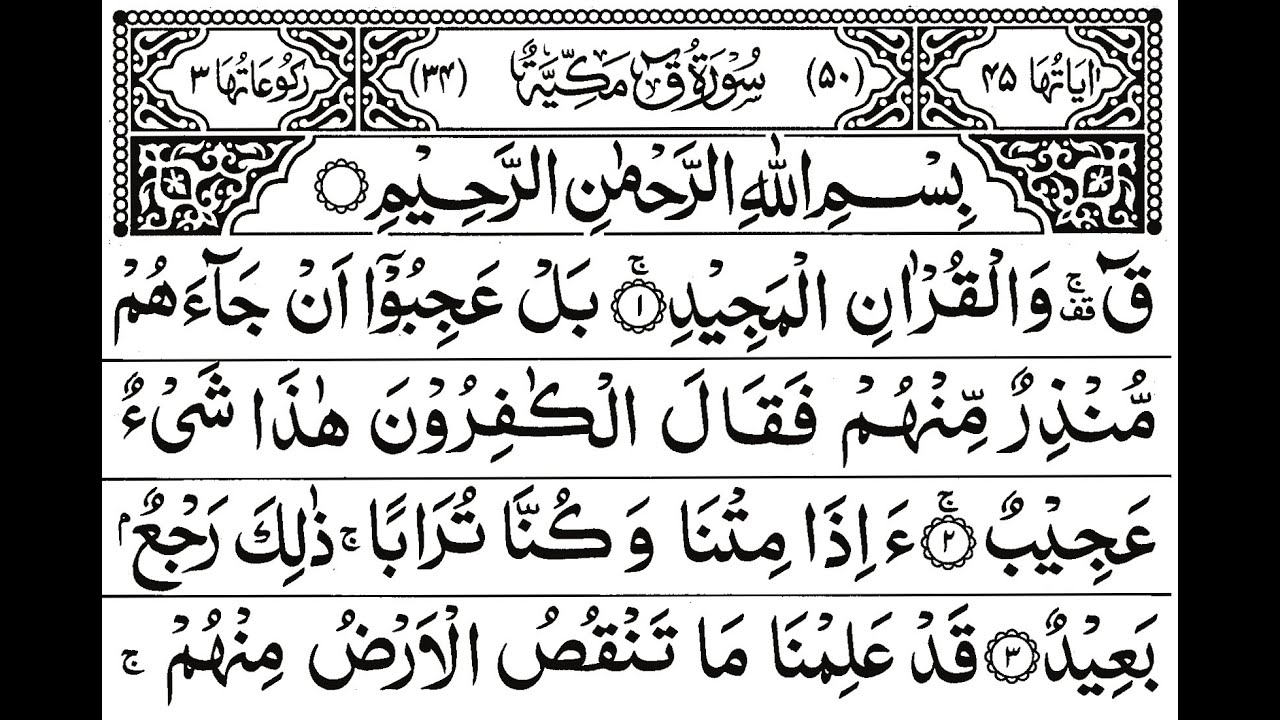 اٰيَاتُهَا ۴۵ (۵۰) سُوْرَةُ قٓ مَكِّيَّةٌ (۳۴) رُكُوْعَاتُهَا ۳
بِسْمِ اللّٰهِ الرَّحْمٰنِ الرَّحِيْمِ
قٓ ۚ قف وَالْقُرْاٰنِ الْمَجِيْدِ ۚ ﴿۱﴾ بَلْ عَجِبُوْۤا اَنْ جَآءَهُمْ
مُّنْذِرٌ مِّنْهُمْ فَقَالَ الْكٰفِرُوْنَ هٰذَا شَیْءٌ
عَجِيْبٌ ۚ ﴿۲﴾ ءَاِذَا مِتْنَا وَكُنَّا تُرَابًا ۚ ذٰلِكَ رَجْعٌۢ
بَعِيْدٌ ﴿۳﴾ قَدْ عَلِمْنَا مَا تَنْقُصُ الْاَرْضُ مِنْهُمْ ۚ